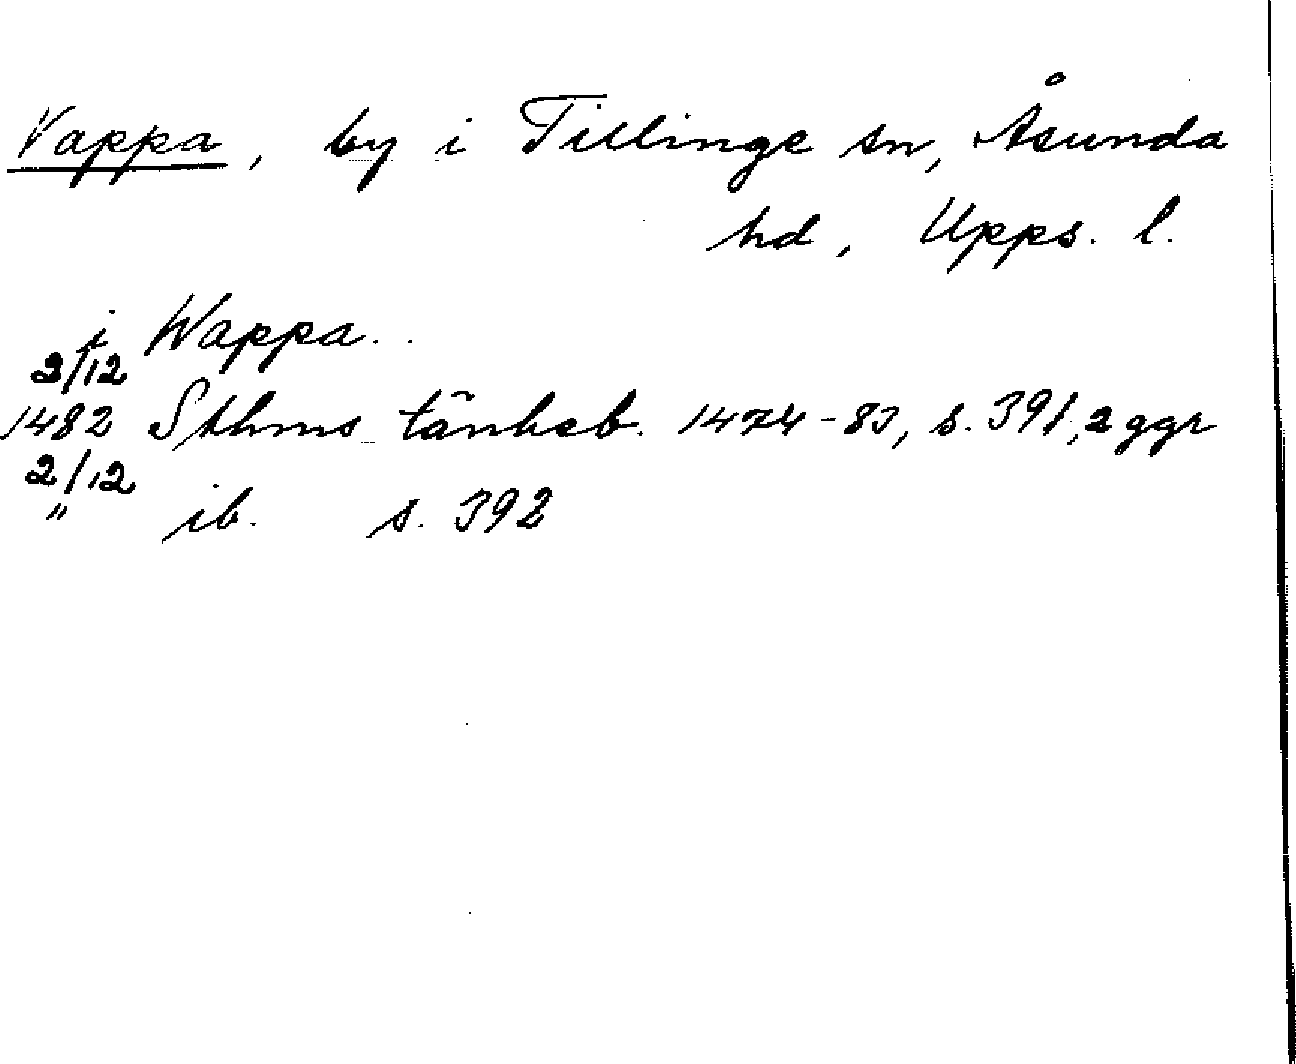 Vappa, by i Tillinge sn, Åsunda
hd, Upps. l.
i Wappa..
2/12
1482 Sthms tänkeb. 1474-83, s. 391, 2 ggr
2/12
" ib. s. 392